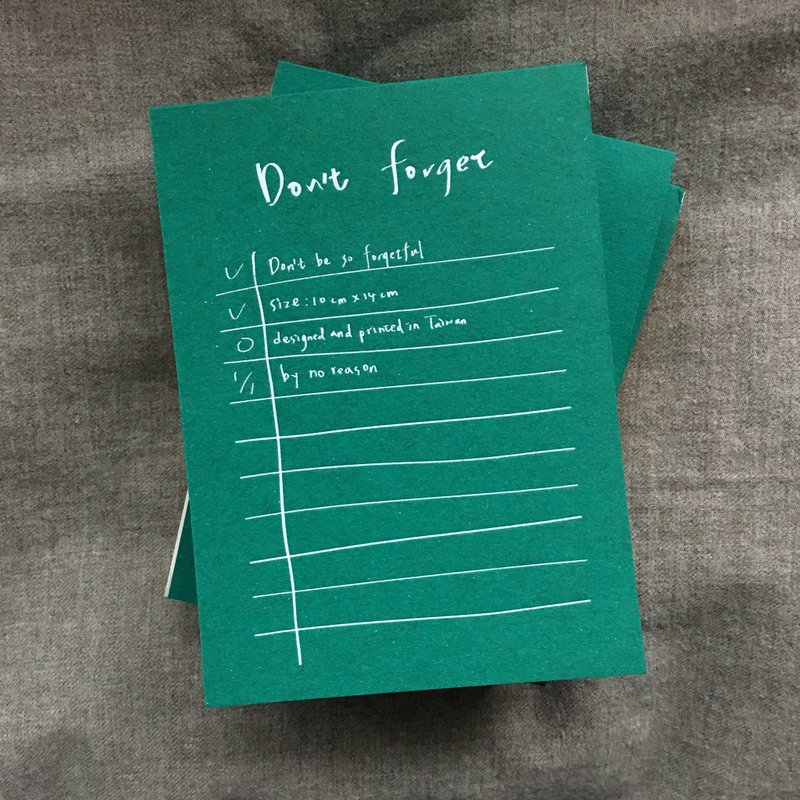 Don't forget
✓ Don't be so forgetful
✓ size: 10 cm x 14 cm
O designed and printed in Taiwan
1/1 by no reason